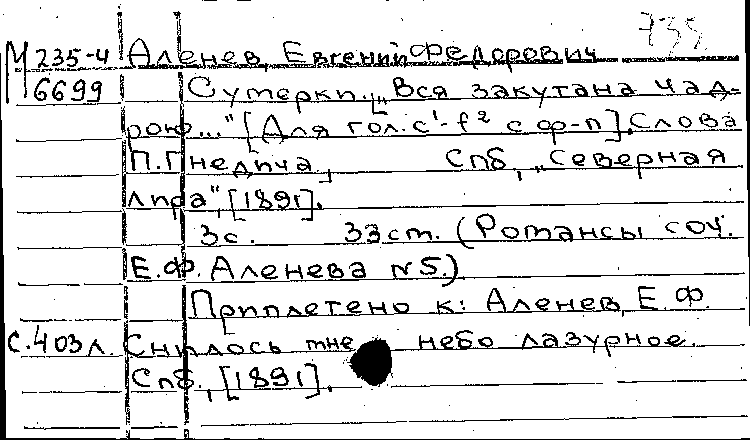 735
М 235-4 Аленев, Евгений Федорович
6699 Сумерки. „Вся закутана чад-
рою..." [Для гол. c¹-f² с ф-п]. Слова
П. Гнедича, Спб, „Северная
лира", [1891].
3 с. 33 ст. (Романсы соч.
Е.Ф. Аленева №5.)
Приплетено к: Аленев, Е.Ф.
С. 403 л. Снилось мне небо лазурное.
Спб., [1891].